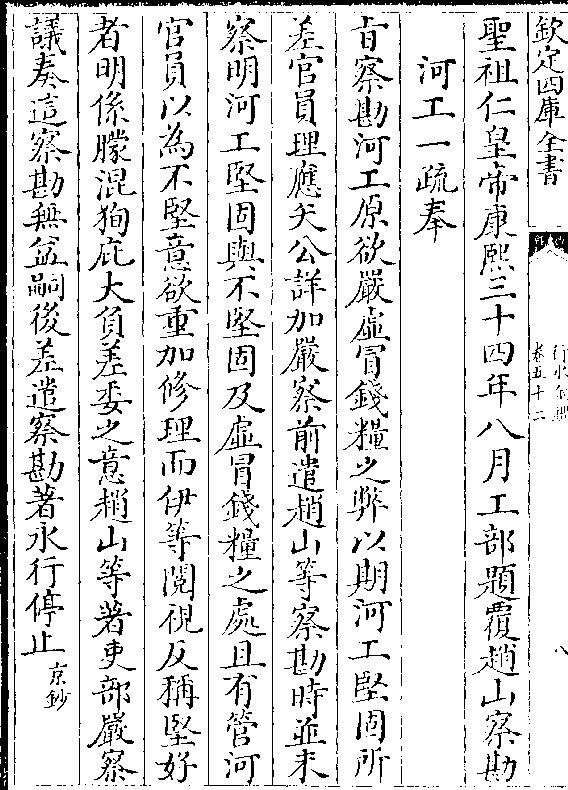 欽定四庫全書
行水金鑑
卷五十二
八
聖祖仁皇帝康熙三十四年八月工部題覆趙山察勘
河工一疏奉
㫖察勘河工原欲嚴虛冒錢糧之弊以期河工堅固所
差官員理應矢公詳加嚴察前遣趙山等察勘時並未
察明河工堅固與不堅固及虛冒錢糧之處且有管河
官員以為不堅意欲重加修理而伊等閱視反稱堅好
者明係朦混狥庇大負差委之意趙山等著吏部嚴察
議奏這察勘無益嗣後差遣察勘著永行停止京鈔